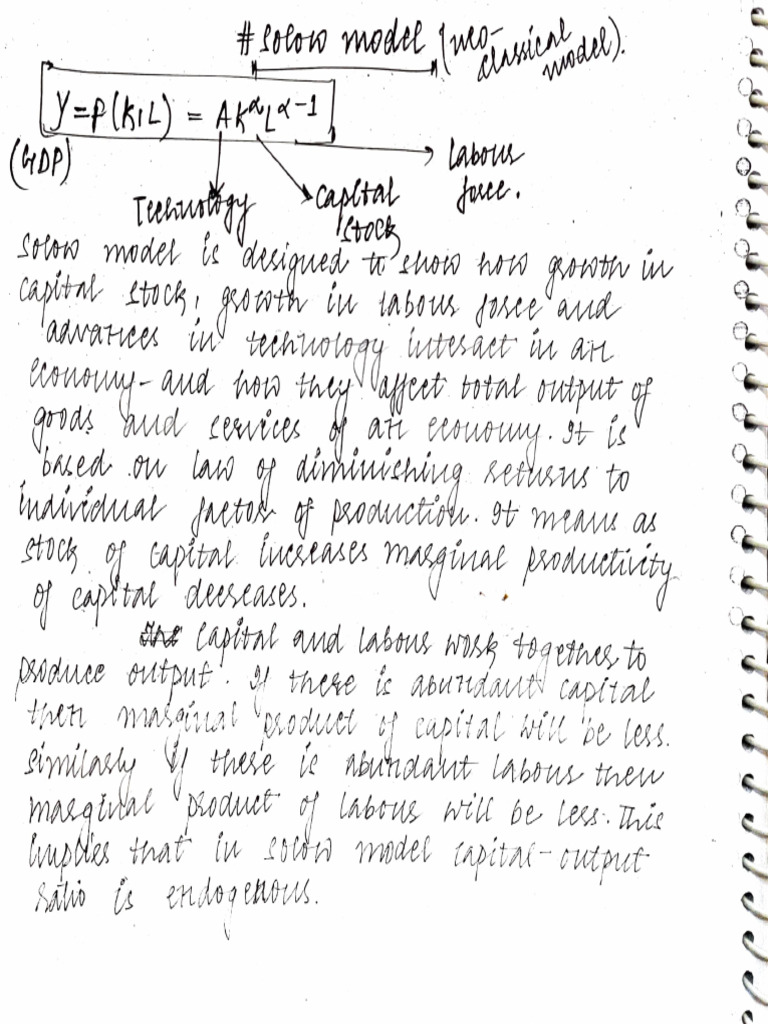 # Solow model (neo-
classical
model).
Y=P(K,L) = AK^α L^α-1
(GDP)
Labour
force.
Technology
Capital
stock
Solow model is designed to show how growth in
capital stock, growth in labour force and
advances in technology interact in an
economy - and how they affect total output of
goods and services of an economy. It is
based on law of diminishing returns to
individual factor of production. It means as
stock of capital increases marginal productivity
of capital decreases.
Capital and labour work together to
produce output. If there is abundant capital
then marginal product of capital will be less.
Similarly if there is abundant labour then
marginal product of labour will be less. This
implies that in solow model capital-output
ratio is endogenous.